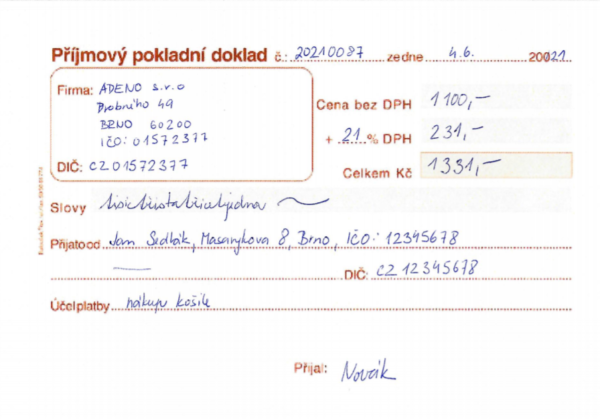 Příjmový pokladní doklad č.: 20210087 ze dne 4.6. 20021
Firma: ADENO s.r.o
Drobného 49
BRNO 60200
IČO: 01572377
DIČ: CZ01572377
Cena bez DPH 1100,—
+ 21 % DPH 231,—
Celkem Kč 1331,—
Slovy tisíctřistatřicetjedna
Přijato od Jan Sedlák, Masarykova 8, Brno, IČO: 12345678
DIČ: CZ 12345678
Účel platby nákup košile
Přijal: Novák